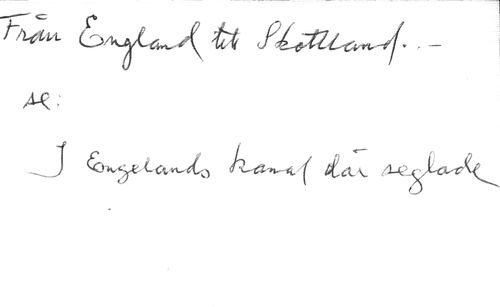 Från England till Skottland. . –
se:
I Engelands kanal där seglade